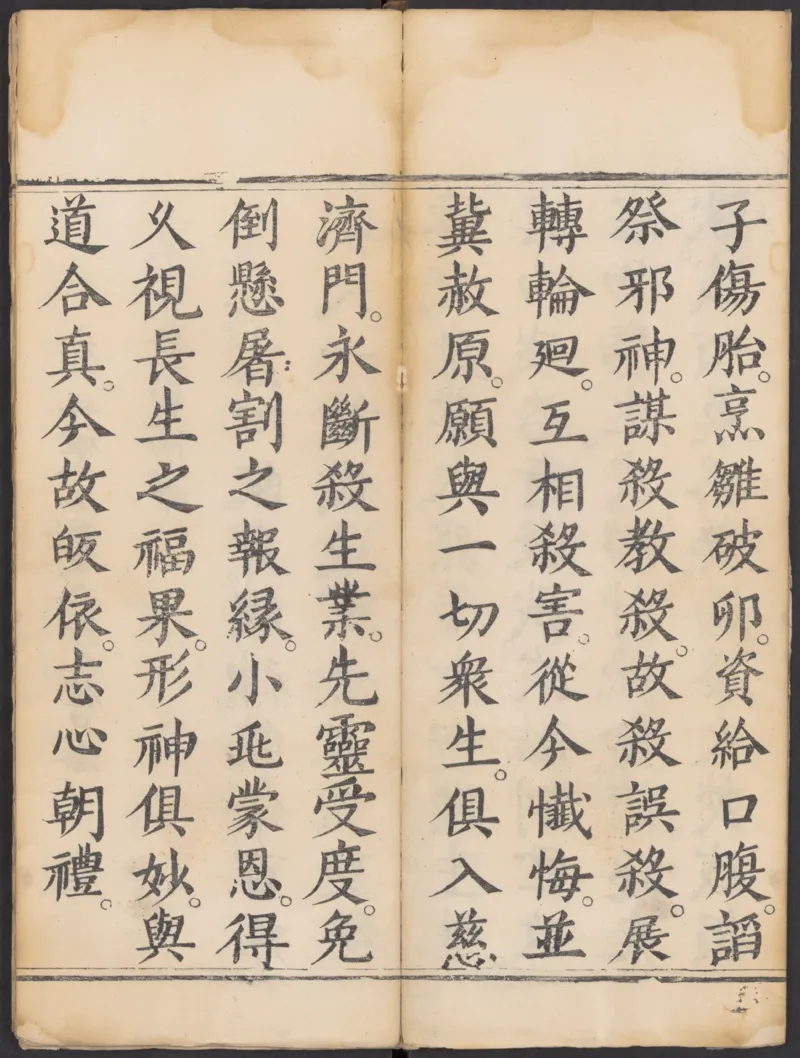 子傷胎。烹雛破卵。資給口腹。諂
祭邪神。謀殺教殺。故殺誤殺。展
轉輪廻。互相殺害。從今懺悔。並
冀赦原。願與一切衆生。俱入慈
濟門。永斷殺生業。先靈受度。免
倒懸屠割之報縁。小兆蒙恩。得
乆視長生之福果。形神俱妙。與
道合真。今故皈依。志心朝禮。